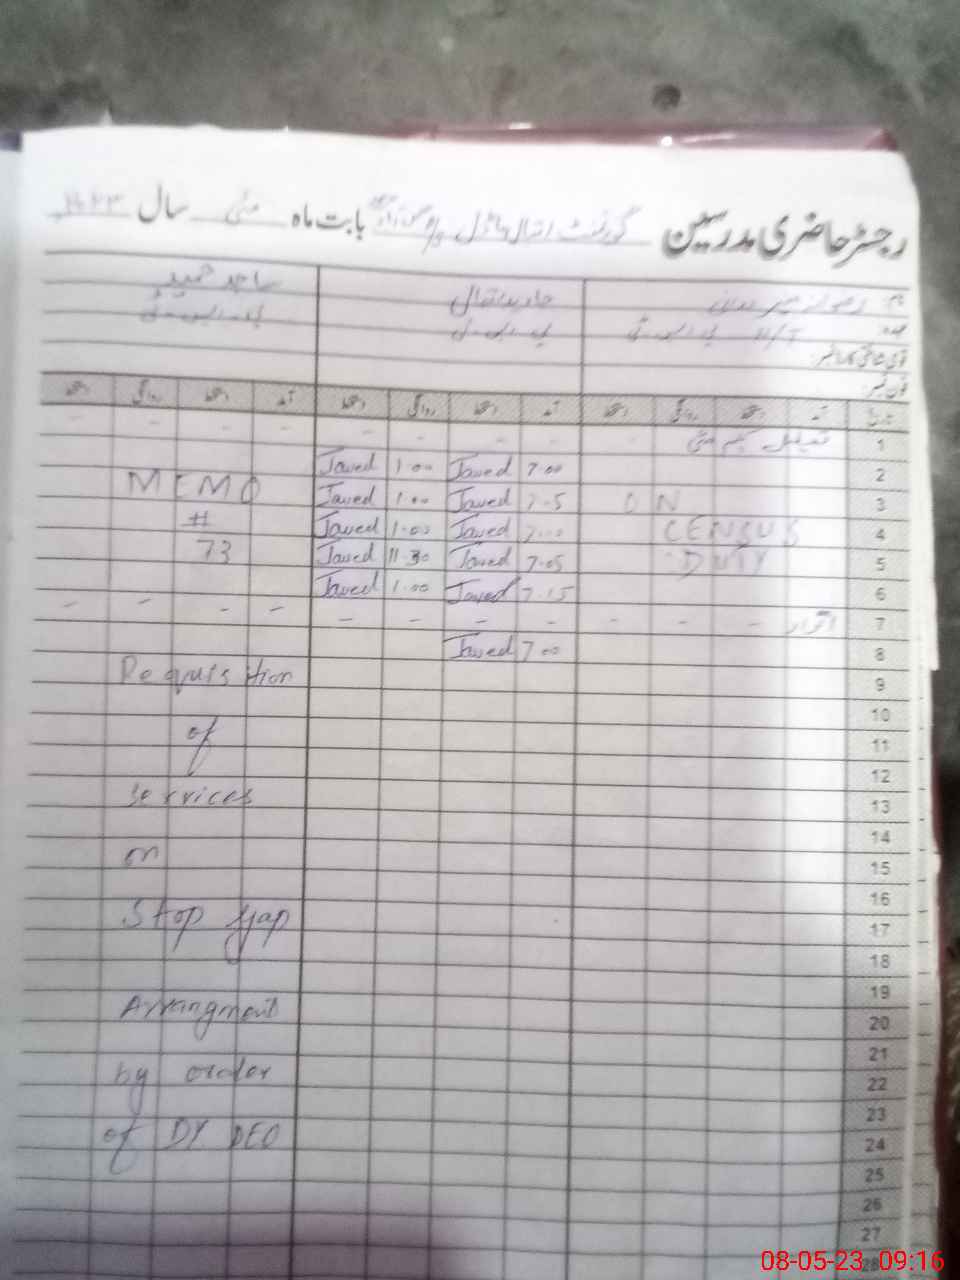 رجسٹر حاضری مدرسین گورنمنٹ اقبال ماڈل بابت ماہ مئی سال
نام جاوید اقبال ساجد حمید
عہدہ H/T پی ایس ٹی پی ایس ٹی
قومی شناختی کارڈ نمبر:
فون نمبر:
تاریخ آمد دستخط روانگی دستخط آمد دستخط روانگی دستخط آمد دستخط روانگی دستخط
1 تعطیل یکم مئی - - - - - - - -
2 7.00 Javed 1.00 Javed
3 ON 7.5 Javed 1.00 Javed MEMO
4 CENSUS 7.00 Javed 1.00 Javed #
5 DUTY 7.05 Javed 11.30 Javed 73
6 7.15 Javed 1.00 Javed
7 اتوار - - - - - - - - - -
8 7.00 Javed
9 Requisition
10
11 of
12
13 Services
14
15 on
16
17 Stop gap
18
19
20 Arrangment
21
22 by order
23
24 of DY DEO
25
26
27
28
08-05-23 09:16